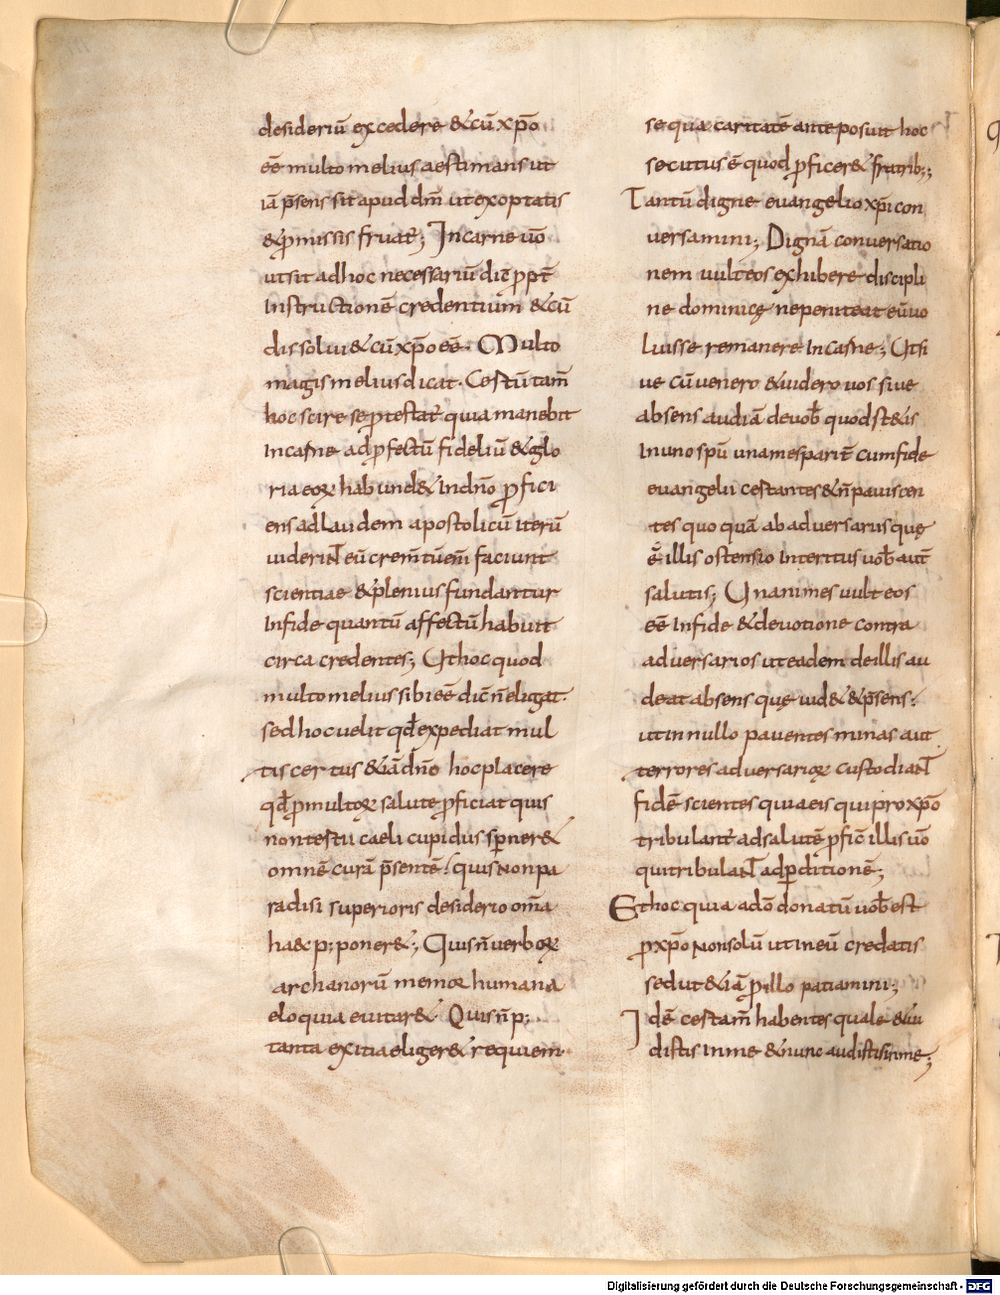 desideriū excedere &cū xp̄o
eē multo melius aestimans ut
iā p̄sens sit apud dm̄ ut exoptatis
&p̄missis fruat̄; In carne ūo
utsit adhoc necessariū diē ppt̄
Instructionē credentium &cū
dissolui &cū xp̄o eē. Multo
magis melius dicat. Certū tam̄
hoc scire se ptestat̄ quia manebit
Incarne ad pfectū fideliū &glo
ria eoꝝ habund& Indn̄o pfici
ens ad laudem apostolicū iterū
uiderint eū
scientiae &plenius fundantur
Infide quantū affectū habuit
circa credentes; Ut hoc quod
multo melius sibi eē dic̄ n̄ eligat.
sed hoc uelit qd̄ expediat mul
tis certus &iā dn̄o hoc placere
qd̄ p multoꝝ salute pficiat quis
non testū caeli cupidus sperner&
omnē curā p̄sentē? quis Non pa
radisi superioris desiderio om̄a
haec p; poner&; Quis n̄ uerboꝝ
archanorū memor humana
eloquia euitar& Quis n̄ p;
tanta exitia eliger& requiem
se qua caritatē anteposuit hoc
secutus ē quod pficer& fratrib;;
Tantū digne euangelio xp̄i con
uersamini; Dignā conuersatio
nem uult eos exhibere discipli
ne dominicę ne peniteat eū uo
luisse remanere Incarne; Utsi
ue cū uenero &uidero uos siue
absens audiā de uob̄ quod st&is
In uno spū unamespariт̄ cum fide
euangelii certantes &n̄ pauiscen
tes quo quā ab aduersariis quę
ē illis ostensio Interitus uob̄ aut̄
salutis; Unanimes uult eos
eē Infide &deuotione contra
aduersarios ut eadem de illis au
deat absens quę uid& &p̄sens:
ut in nullo pauentes minas aut
terrores aduersarioꝝ custodiant
fidē scientes quia eis qui pro xp̄o
tribulant̄ ad salutē pfic̄ illis ūo
qui tribulant ad pditionē;
Ethoc quia a dō donatū uob̄ est
p xp̄o Non solū ut in eū credatis
sed ut &iā p illo patiamini;
Idē certam̄ habentes quale &ui
distis In me &nunc audistis In me;